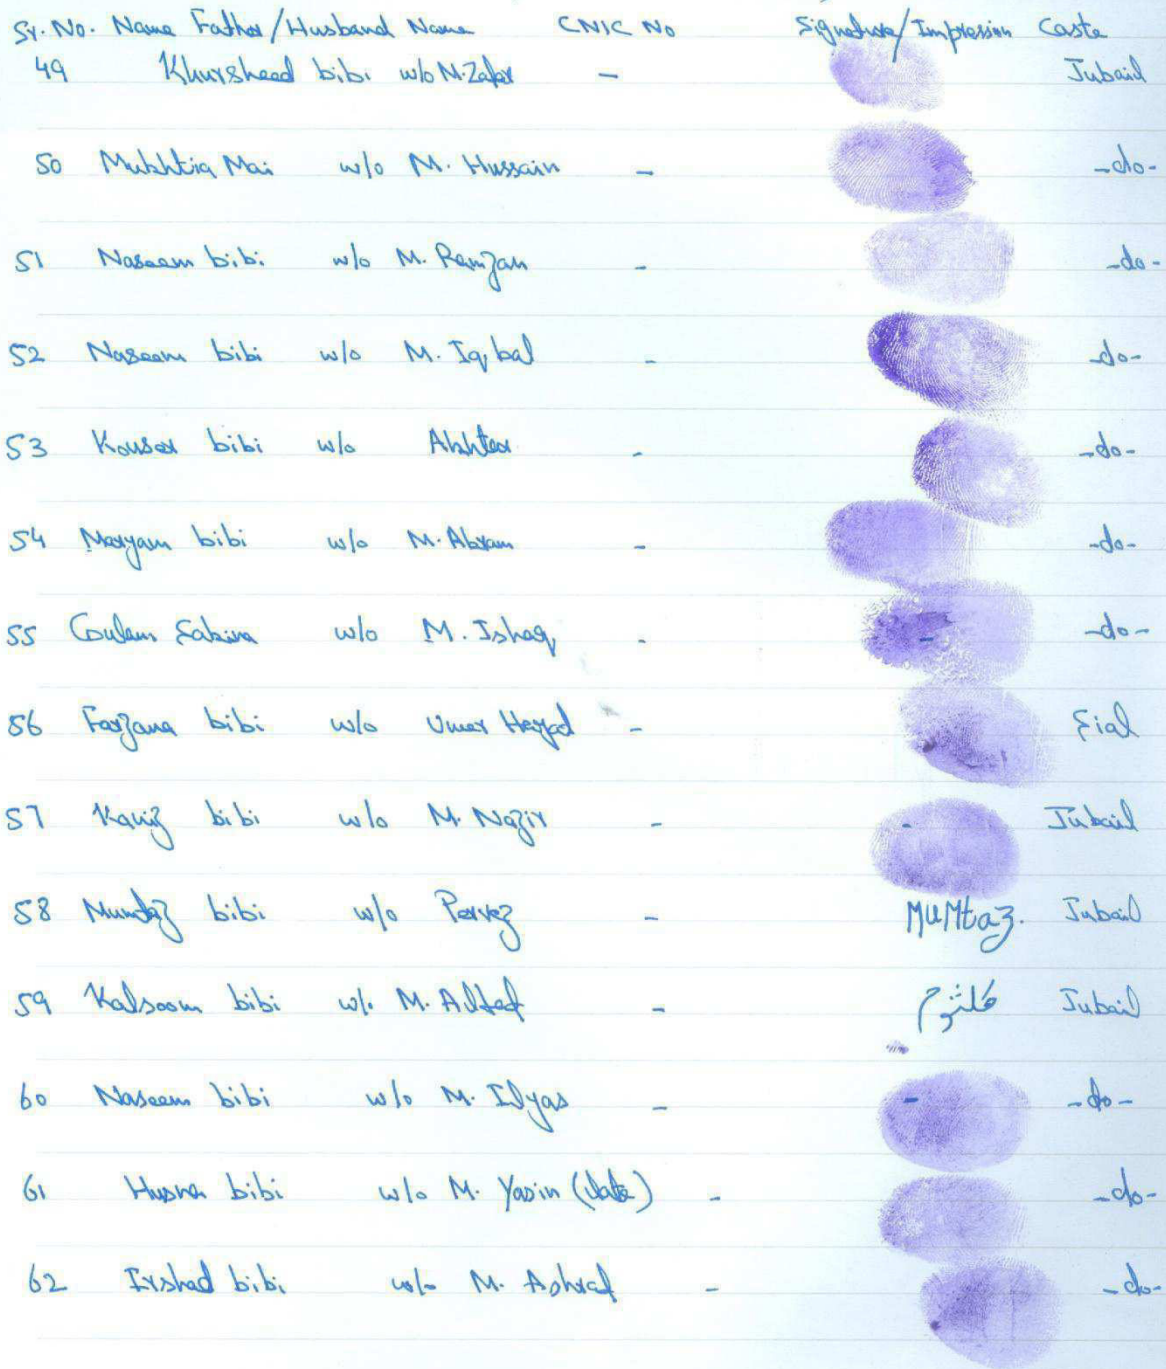 Sr. No. Name Father/Husband Name CNIC No Signature/Impression Caste
49 Khursheed bibi w/o M. Zafar - Jubail
50 Mukhtia Mai w/o M. Hussain - -do-
51 Naseem bibi w/o M. Ramzan - -do-
52 Naseem bibi w/o M. Iqbal - -do-
53 Kousar bibi w/o Akhter - -do-
54 Maryam bibi w/o M. Akram - -do-
55 Gulam Sakina w/o M. Ishaq - -do-
56 Farzana bibi w/o Umer - Sial
57 Kaniz bibi w/o M. Nazir - Jubail
58 Mumtaz bibi w/o Pervez - MuMtaz. Jubail
59 Kalsoom bibi w/o M. Altaf - کلثوم Jubail
60 Naseem bibi w/o M. Ilyas - -do-
61 Husna bibi w/o M. Yasin (late) - -do-
62 Irshad bibi w/o M. Ashraf - -do-